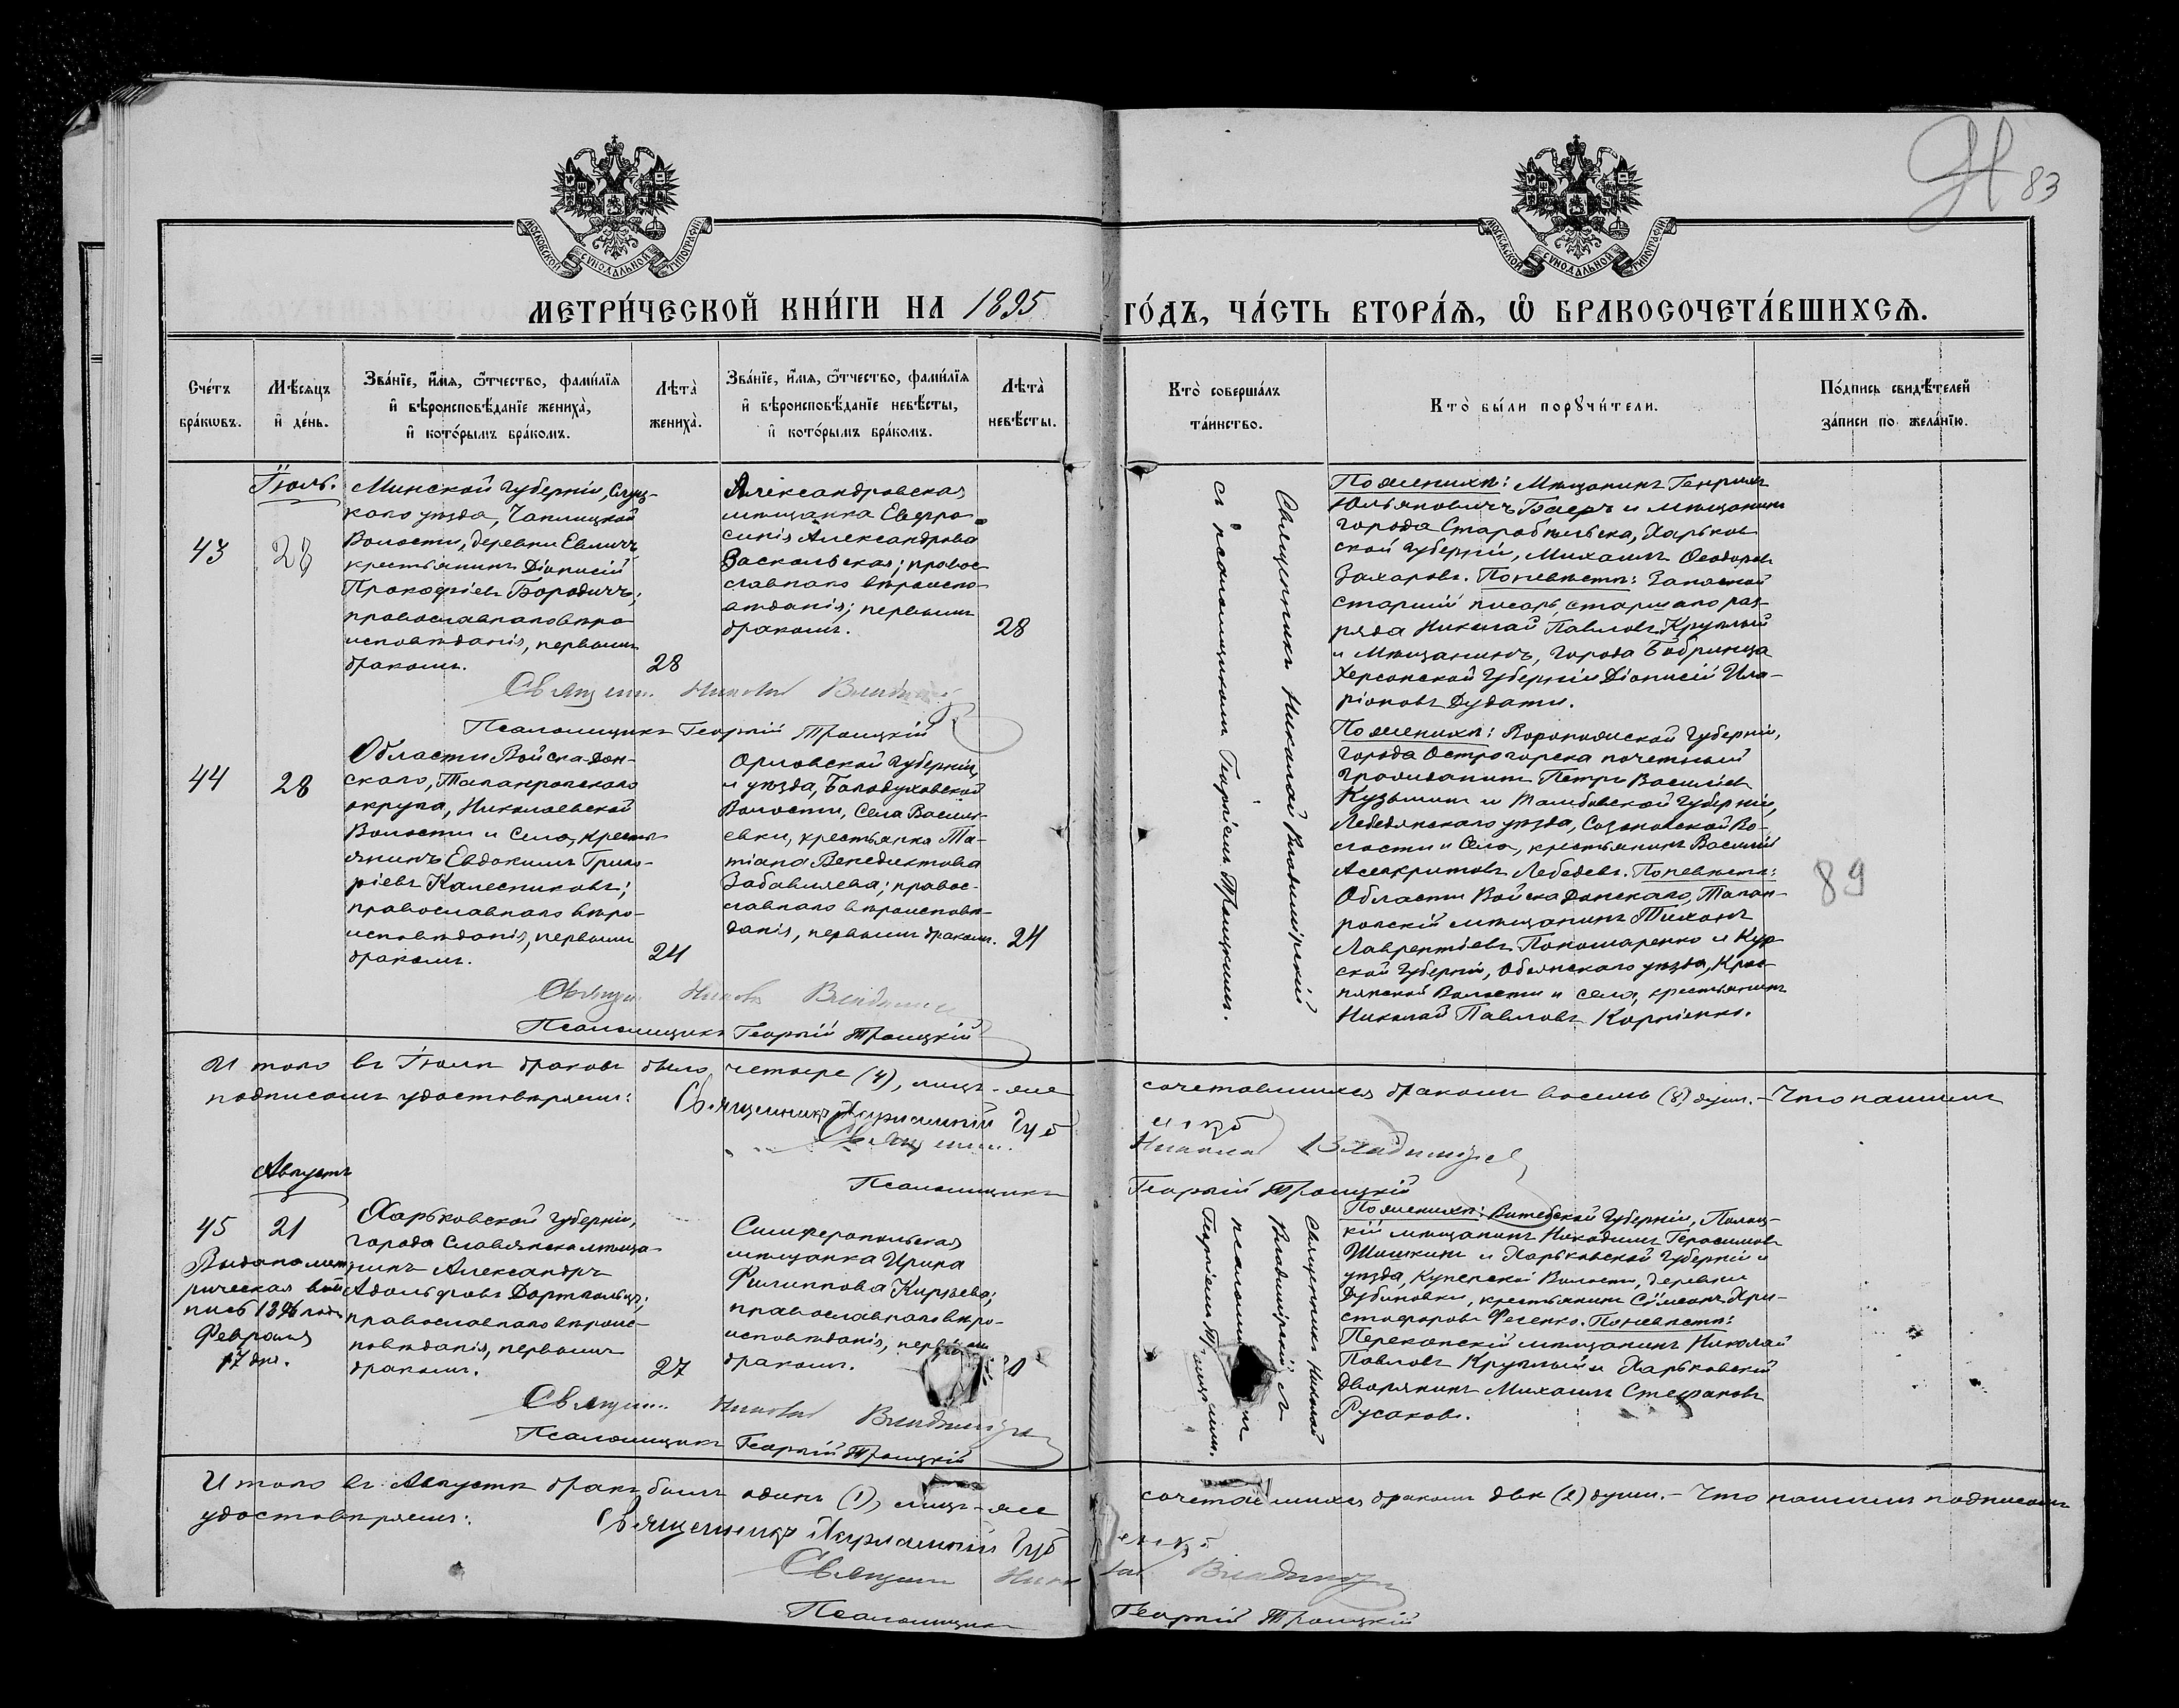 83
МОСКОВСКОЙ СѴНОДАЛЬНОЙ ТИПОГРАФІИ
МОСКОВСКОЙ СѴНОДАЛЬНОЙ ТИПОГРАФІИ
МЕТРИ́ЧЕСКОЙ КНИ́ГИ НА 1895 ГО́ДЪ, ЧА́СТЬ ВТОРА́Ѧ, Ѽ БРАКОСОЧЕТА́ВШИХСѦ.
Сче́тъ
бра́кωвъ.
Мѣ́сяцъ
и҆ де́нь.
Зва́нїе, и҆́мѧ, ѻ҆́тчество, фами́лїѧ
и҆ вѣроисповѣ́данїе жениха̀,
и҆ кото́рымъ бра́комъ.
Лѣта̀
жениха̀.
Зва́нїе, и҆́мѧ, ѻ҆́тчество, фами́лїѧ
и҆ вѣроисповѣ́данїе невѣ́сты,
и҆ кото́рымъ бра́комъ.
Лѣта̀
невѣ́сты.
Кто̀ соверша́лъ
та́инство.
Кто̀ бы́ли порꙋчи́тели.
По́дпись свидѣ́телей
за́писи по жела́нїю.
Іюль.
43
28
Минской Губерніи, Слуц-
каго уѣзда, Чаплицкой
Волости, деревни
крестьянинъ Діонисій
Прокофіевъ Бородичъ;
православнаго вѣро-
исповѣданія, первымъ
бракомъ.
28
Александровская
мѣщанка Евфро-
синія Александрова
Васкольская; правос-
лавнаго вѣроиспо-
вѣданія; первымъ
бракомъ.
28
Священникъ Николай Владимірскій
съ псаломщикомъ Георгіемъ Троицкимъ.
По женихѣ: Мѣщанинъ Генрихъ
Юльяновичъ Баеръ и мѣщанинъ
города Старобѣльска, Харьков-
ской Губерніи, Михаилъ Ѳеодоровъ
Захаровъ. По невѣстѣ: Запасной
старшій писарь, старшаго раз-
ряда Николай Павловъ Круглый
и Мѣщанинъ, города Бобринца
Херсонской Губерніи Діонисій Ила-
ріоновъ Дудатъ.
Священ. Николай Владимірскій
Псаломщикъ Георгій Троицкій
44
28
Области Войска Дон-
скаго, Таганрогскаго
округа, Николаевской
Волости и Села, кресть-
янинъ Евдокимъ Григо-
ріевъ Калесниковъ;
православнаго вѣро-
исповѣданія, первымъ
бракомъ.
24
Орловской Губерніи
и уѣзда, Богодуховской
Волости, Села Василь-
евки, крестьянка Та-
тіана Венедиктова
Забавляева; правос-
лавнаго вѣроисповѣ-
данія, первымъ бракомъ.
24
По женихѣ: Воронежской Губерніи,
города Острогорска почетный
гражданинъ Петръ Василіевъ
Кузьминъ и Тамбовской Губерніи,
Лебедянскаго уѣзда, Сезеновской Во-
лости и Села, крестьянинъ Василій
Асигкритовъ Лебедевъ. По невѣстѣ:
Области Войска Донскаго, Таган-
рогскій мѣщанинъ Тихонъ
Лаврентіевъ Пономаренко и Кур-
ской Губерніи, Обоянскаго уѣзда, Крас-
нянской Волости и села, крестьянинъ
Николай Павловъ Корніенко.
89
Священ. Николай Владимірскій
Псаломщикъ Георгій Троицкій
Итого въ Іюлѣ браковъ было четыре (4), лицъ-же сочетавшихся бракомъ восемь (8) душъ. – Что нашимъ
подписомъ удостовѣряемъ:
Священникъ
Священ. Николай Владимірскій
Псаломщикъ Георгій Троицкій
Августъ
45
21
Выдана мет-
рическая вы-
пись 1896 года
Февраля
17 дня.
Харьковской Губерніи,
города Славянска мѣща-
нинъ Александръ
Адольфовъ Дортгольцъ;
православнаго вѣроис-
повѣданія, первымъ
бракомъ.
27
Симферопольская
мѣщанка Ирина
Филиппова Киряева;
православнаго вѣро-
исповѣданія, первымъ
бракомъ.
Священникъ Николай
Владимірскій съ
псаломщикомъ
Георгіемъ Троицкимъ.
По женихѣ: Витебской Губерніи, Полоц-
кій мѣщанинъ Никодимъ Герасимовъ
Шишкинъ и Харьковской Губерніи и
уѣзда, Волости, деревни
Дубиновки, крестьянинъ Сѵмеонъ Хри-
стофоровъ Фесенко. По невѣстѣ:
Перекопскій мѣщанинъ Николай
Павловъ Круглый и Харьковскій
дворянинъ Михаилъ Стефановъ
Русаковъ.
Священ. Николай Владимірскій
Псаломщикъ Георгій Троицкій
Итого въ Августѣ бракъ былъ одинъ (1), лицъ-же сочетавшихся бракомъ двѣ (2) души. – Что нашимъ подписомъ
удостовѣряемъ:
Священникъ
Священ. Николай Владимірскій
Псаломщикъ Георгій Троицкій